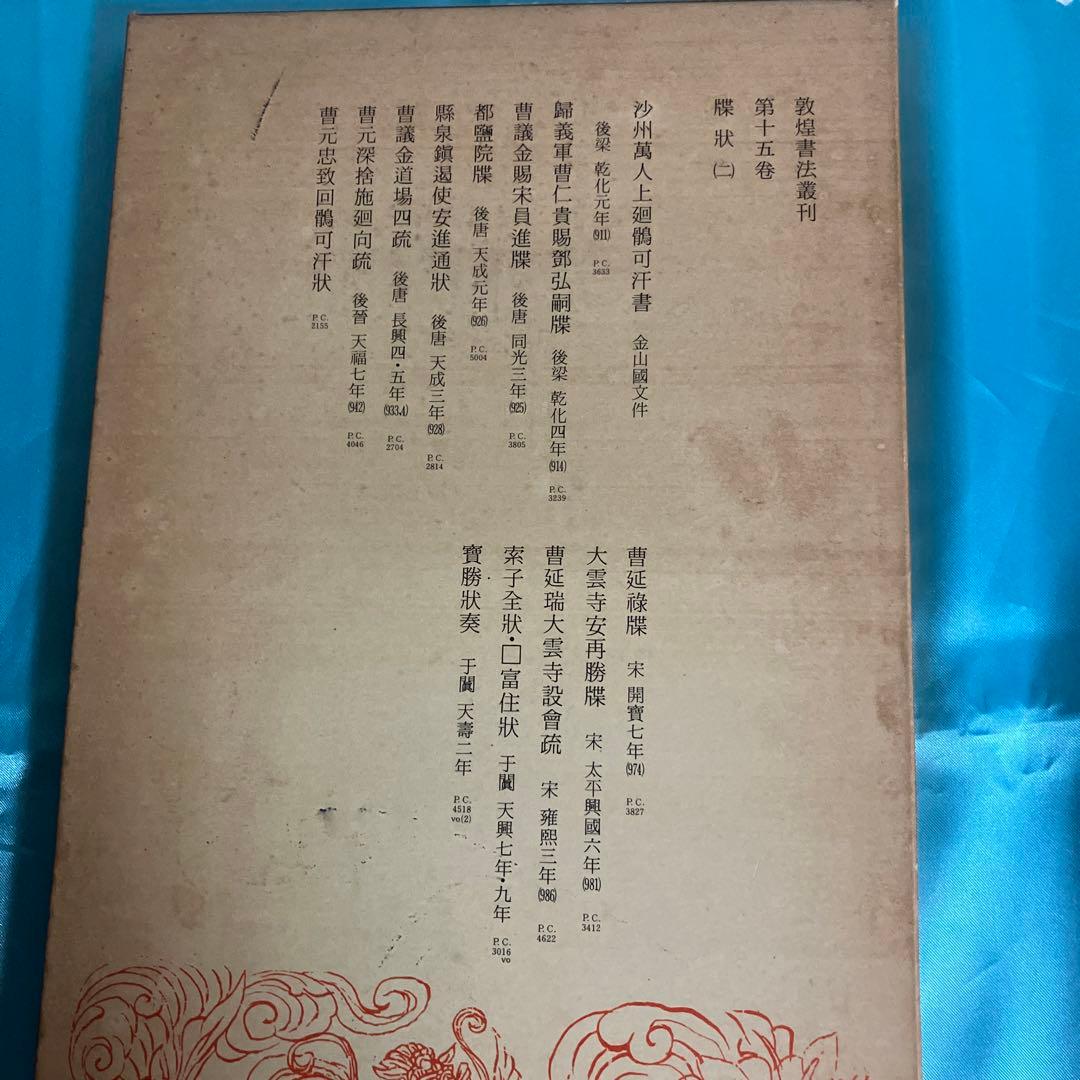 敦煌書法叢刊
第十五卷
牒狀(二)
沙州萬人上廻鶻可汗書 金山國文件
後梁 乾化元年(911) P.C. 3633
歸義軍曹仁貴賜鄧弘嗣牒 後梁 乾化四年(914) P.C. 3239
曹議金賜宋員進牒 後唐 同光三年(925) P.C. 3805
都鹽院牒 後唐 天成元年(926) P.C. 5004
縣泉鎭遏使安進通狀 後唐 天成三年(928) P.C. 2814
曹議金道場四疏 後唐 長興四・五年(933.4) P.C. 2704
曹元深捨施廻向疏 後晉 天福七年(942) P.C. 4046
曹元忠致回鶻可汗狀 P.C. 2155
曹延祿牒 宋 開寶七年(974) P.C. 3827
大雲寺安再勝牒 宋 太平興國六年(981) P.C. 3412
曹延瑞大雲寺設會疏 宋 雍熙三年(986) P.C. 4622
索子全狀・□富住狀 于闐 天興七年・九年 P.C. 3016 vo
寶勝狀奏 于闐 天壽二年 P.C. 4518 vo(2)